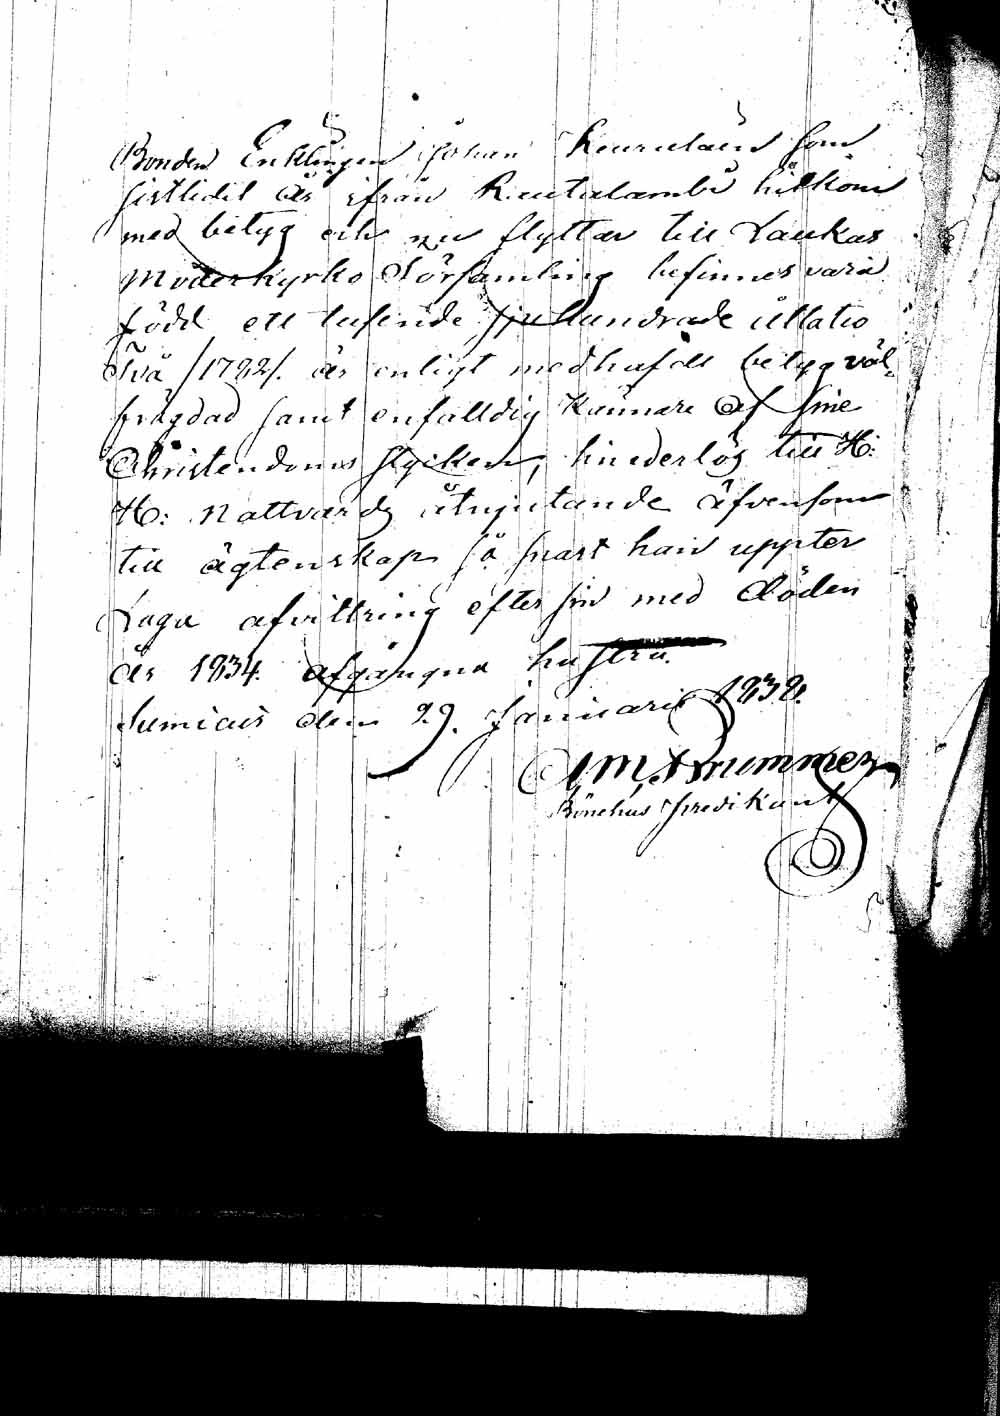 Bonden Enklingen Johan Keurulain som
sistledit år ifrån Rautalambi hitkom
med betyg och nu flyttar till Laukas
Moderkyrko Församling befinnes vara
född ett tusende sjuhundrade åttatio
Två /1782/. är enligt medhafdt betyg väl-
frägdad samt enfalldig kännare af sine
Christendoms stycken, hinderlös till H:
H: Nattvards åtnjutande äfvensom
till ägtenskap så snart han uppter
Laga afvittring efter sin med döden
år 1834 afgångna hustru.
Sumiais den 29. Januarii 1838.
A M Brummer
Bönehus Predikant